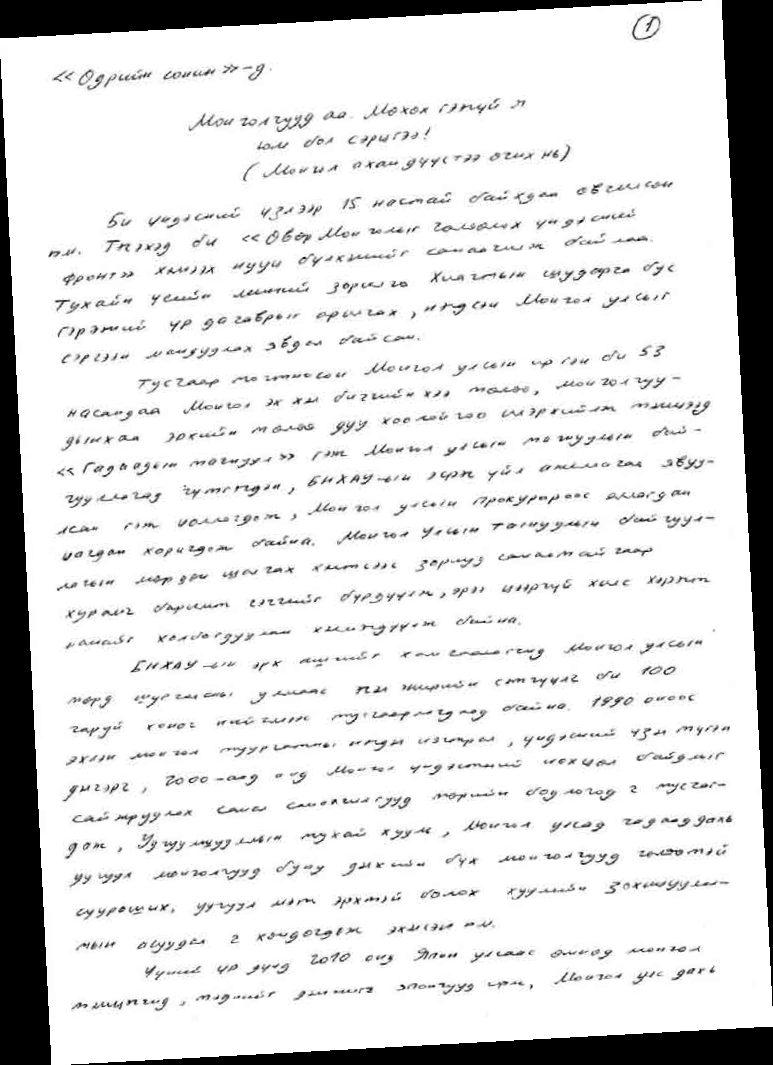 1
<< Өдрийн сонин >> -д.
Монголчууд аа. Мөхөх гэхгүй л
юм бол сэрцгээ!
(Монгол ахан дүүстээ өчих нь)
Би үндэсний үзлээр 15 настай байхдаа өвчилсөн
юм. Тэгэхэд би << Өвөр Монголыг чөлөөлөх үндэсний
фронт>> хэмээх нууц бүлхэмийг санаачилж байлаа.
Тухайн үеийн миний зорилго Хиагтын шударга бус
гэрээний үр дагаврыг арилгах, нэгдсэн Монгол улсыг
сэргээн мандуулах явдал байсан.
Тусгаар тогтносон Монгол улсын иргэн би 53
насандаа Монгол эх хэл бичгийнхээ төлөө, монголчуу-
дынхаа эрхийн төлөө дуу хоолойгоо илэрхийлж тэмцээд
<< Гадаадын тагнуул >> гэж Монгол улсын тагнуулын бай-
гууллагад гүтгэгдэн, БНХАУ-ын эсрэг үйл ажиллагаа явуу-
лсан гэж яллагдаж, Монгол улсын прокуророос
цагдан хоригдож байна. Монгол Улсын тагнуулын байгуул-
лагын мөрдөн шалгах хэлтсээс зориуд санаатайгаар
хуурамч баримт сэлтийг бүрдүүлж, эрээ цээргүй хилс хэрэгт
намайг холбогдуулан хэлмэгдүүлж байна.
БНХАУ-ын эрх ашгийг хамгаалагчид Монгол улсын
төрд шургасны улмаас энгийн сэтгүүлч би 100
гаруй хоног нийгмээс тусгаарлагдаад байна. 1990 оноос
эхлэн монгол туургатны нэгдэл интеграл, үндэсний үзэл түгэн
дэлгэрч, 2000-аад онд Монгол үндэстний нөхцөл байдлыг
сайжруулах санал санаачилгууд төрийн бодлогод ч тусгаг-
даж, Уугуулчуудын тухай хууль, Монгол улсад гадаад дахь
уугуул монголчууд буюу дэлхийн бүх монголчууд чөлөөтэй
суурьших, уугуул мэт эрхтэй болох хуулийн зохицуулал-
тын асуудал ч хөндөгдөж эхэлсэн юм.
Үүний үр дүнд 2010 онд Япон улсаас өмнөд монгол
тэмцэгчид, тэднийг дэмжигч япончууд ирж, Монгол улс дахь